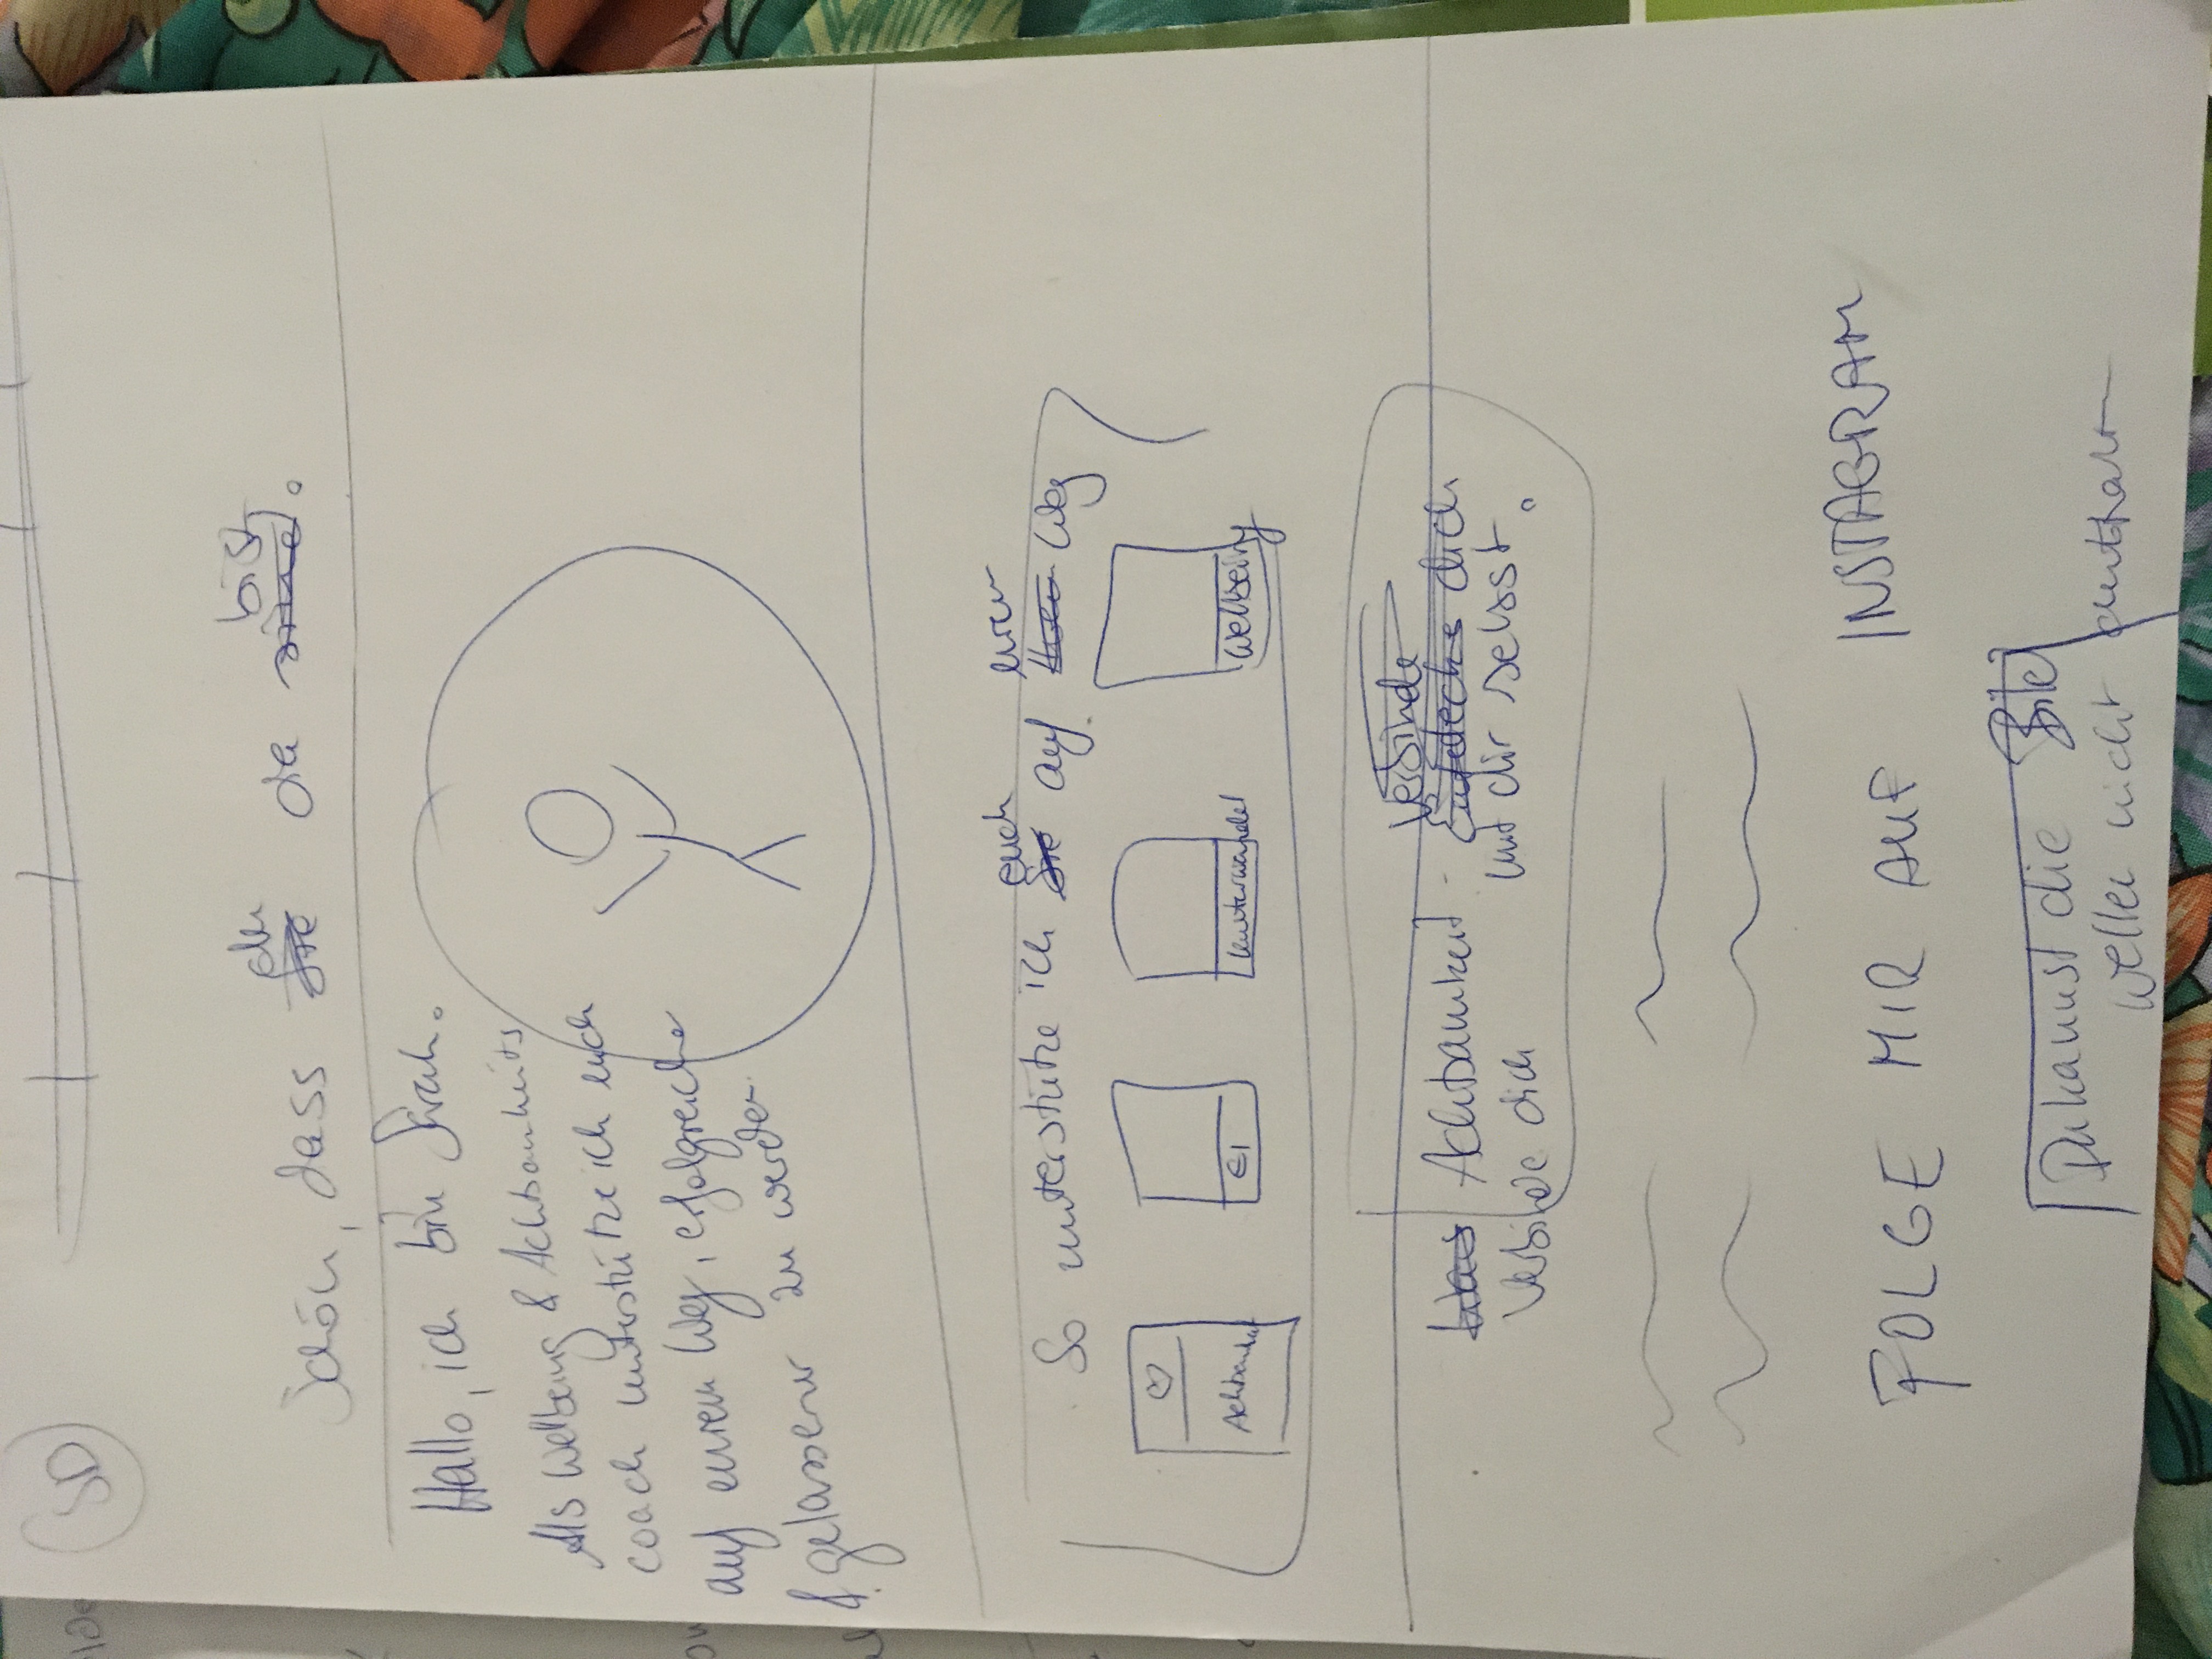 SD
Schön, dass du da bist.
Hallo, ich bin Sarah.
Als Wellbeing & Achtsamkeits
coach unterstütze ich euch
auf eurem Weg, erfolgreicher
& gelassener zu werden.
So unterstütze ich euch auf eurem Weg
♡
Achtsamkeit
EI
Kulturwandel
Wellbeing
Achtsamkeit - Verbinde dich
Verbinde dich
mit dir selbst.
FOLGE MIR AUF INSTAGRAM
Du kannst die Bild
Wellen nicht